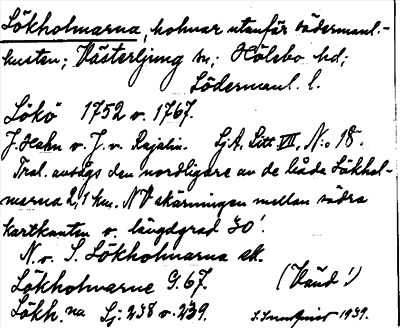 Lökholmarna, holmar utanför södermanl.-
kusten; Västerljung sn; Hölebo hd;
Södermanl. l.
Lökö 1752 o. 1767.
J. Hahn o. J. v. Rajalin. SjA. Litt VII, N:o 18.
Trol. avsågs den nordligare av de båda Lökhol-
marna 2,1 km. NV skärningen mellan södra
kartkanten o. längdgrad 30'.
N. o. S. Lökholmarna ek.
Lökholmarne G. 67. (Vänd!)
Lökh. na Sj: 238 o. 239. 1939.